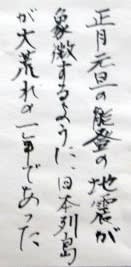 正月元旦の能登の地震が
象徴するように、日本列島
が大荒れの一年であった